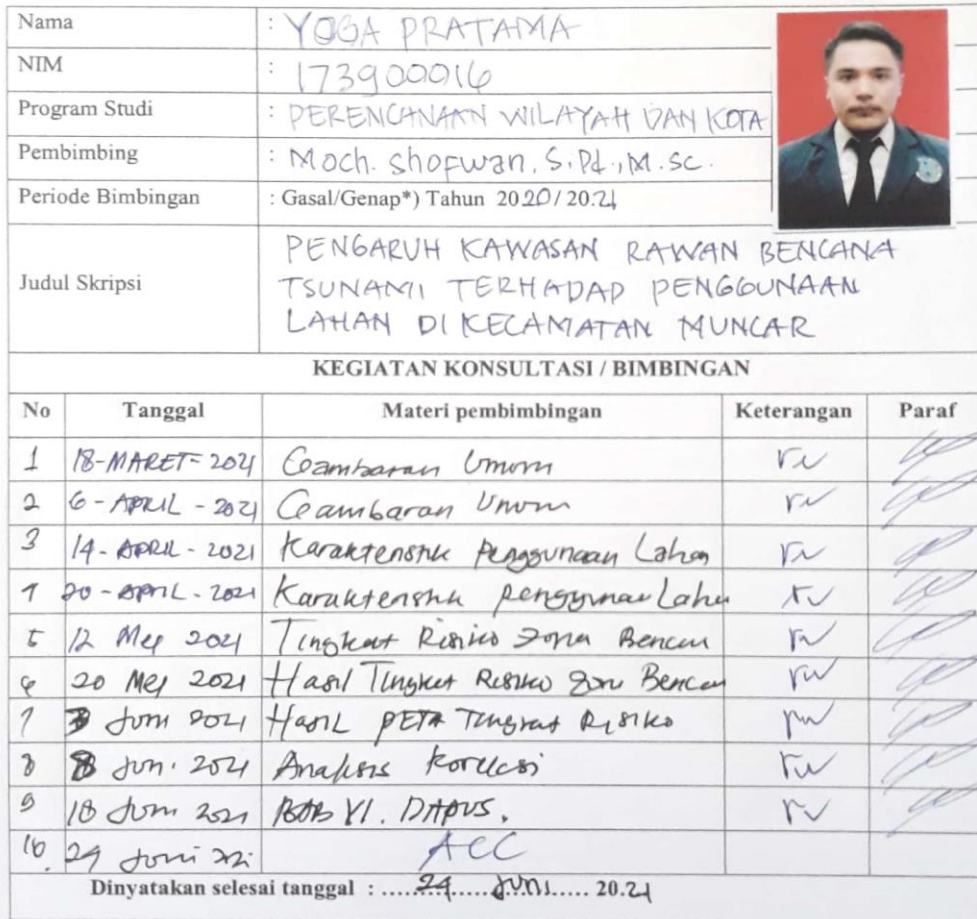 Nama : YOGA PRATAMA
NIM : 173900016
Program Studi : PERENCANAAN WILAYAH DAN KOTA
Pembimbing : Moch. Shofwan, S.Pd., M.Sc.
Periode Bimbingan : Gasal/Genap*) Tahun 2020/2021
Judul Skripsi : PENGARUH KAWASAN RAWAN BENCANA
TSUNAMI TERHADAP PENGGUNAAN
LAHAN DI KECAMATAN MUNCAR
KEGIATAN KONSULTASI / BIMBINGAN
No Tanggal Materi pembimbingan Keterangan Paraf
1 18-MARET-2021 Gambaran Umum
2 6-APRIL-2021 Gambaran Umum
3 14-APRIL-2021 Karakteristik Penggunaan Lahan
4 20-APRIL-2021 Karakteristik Penggunaan Lahan
5 12 Mei 2021 Tingkat Risiko Zona Bencan
6 20 Mei 2021 Hasil Tingkat Resiko Zona Bencan
7 3 Juni 2021 Hasil PETA Tingkat Risiko
8 8 Juni 2021 Analisis Korelasi
9 18 Juni 2021 BAB VI. DAPUS.
10. 24 Juni 2021 ACC
Dinyatakan selesai tanggal : .....24.....Juni..... 20.21